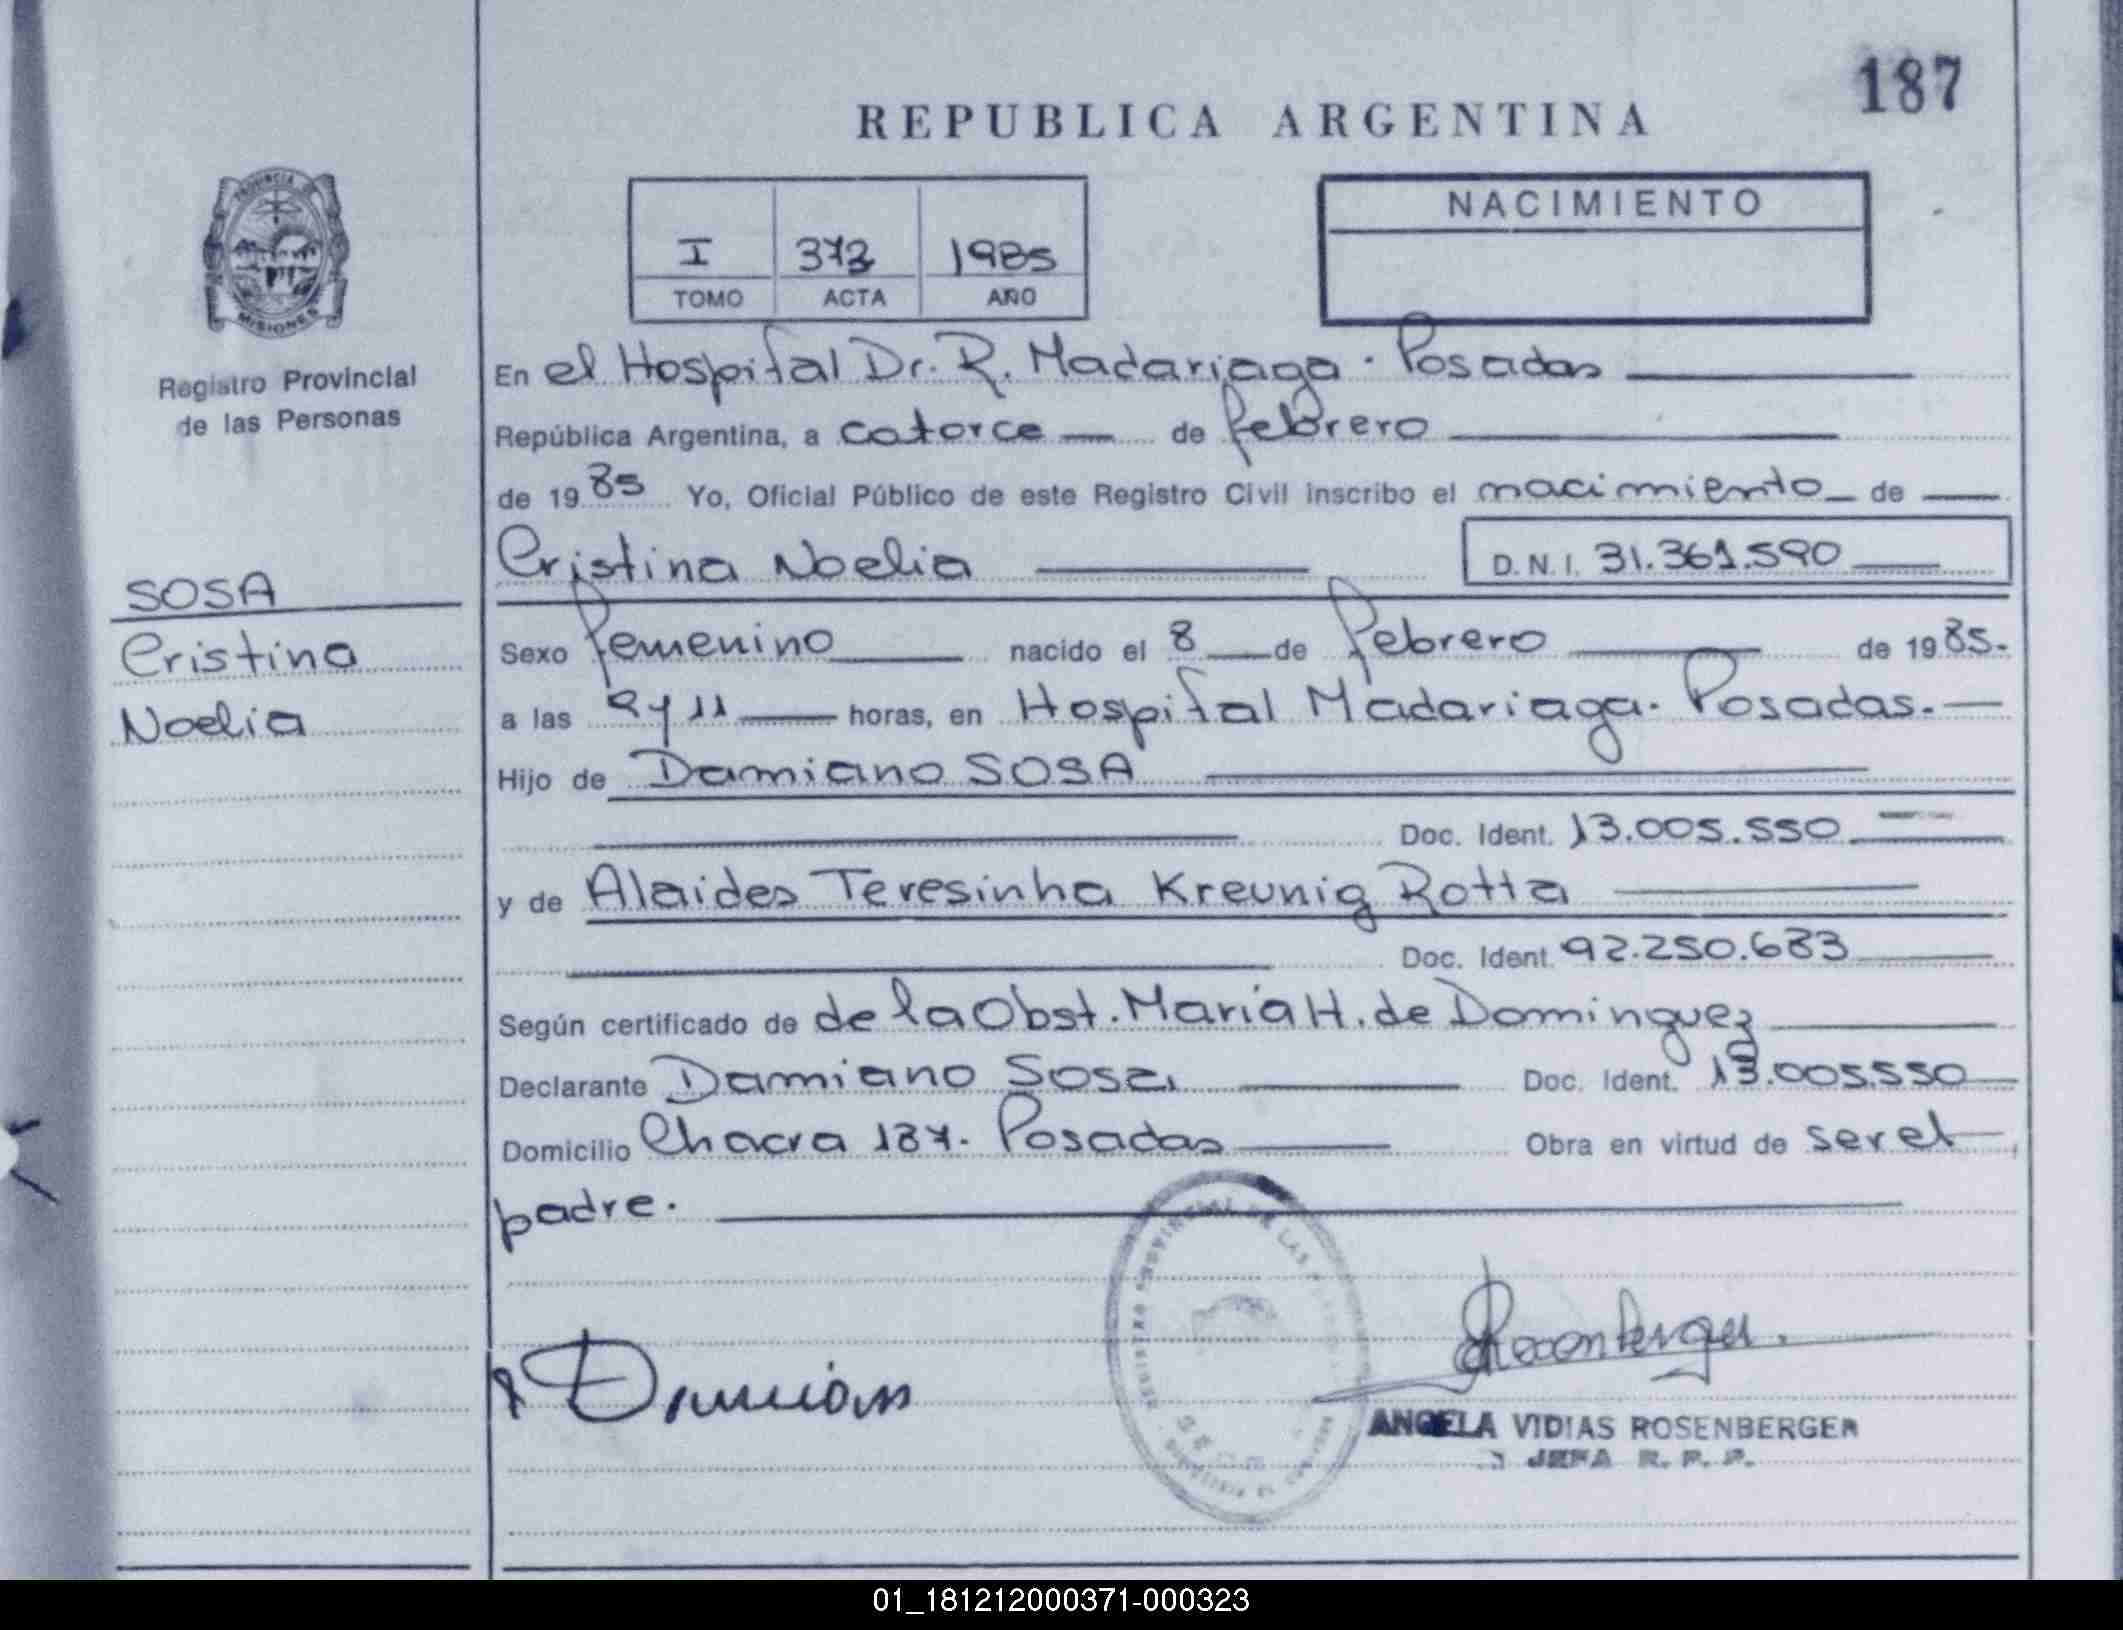 187
REPUBLICA ARGENTINA
PROVINCIA DE
MISIONES
Registro Provincial
de las Personas
I 373 1985
TOMO ACTA AÑO
NACIMIENTO
En el Hospital Dr. R. Madariaga. Posadas
República Argentina, a catorce de febrero
de 1985 Yo, Oficial Público de este Registro Civil inscribo el nacimiento de
Cristina Noelia D.N.I. 31.361.590
SOSA
Cristina
Noelia
Sexo femenino nacido el 8 de febrero de 1985.
a las 9 y 11 horas, en Hospital Madariaga. Posadas.
Hijo de Damiano SOSA
Doc. Ident. 13.005.550
y de Alaides Teresinha Kreunig Rotta
Doc. Ident. 92.250.683
Según certificado de de la Obst. María H. de Dominguez
Declarante Damiano Sosa Doc. Ident. 13.005.550
Domicilio Chacra 187. Posadas Obra en virtud de ser el
padre.
REGISTRO PROVINCIAL DE LAS
Rosenberger.
ANGELA VIDIAS ROSENBERGER
JEFA R. P. P.
01_181212000371-000323